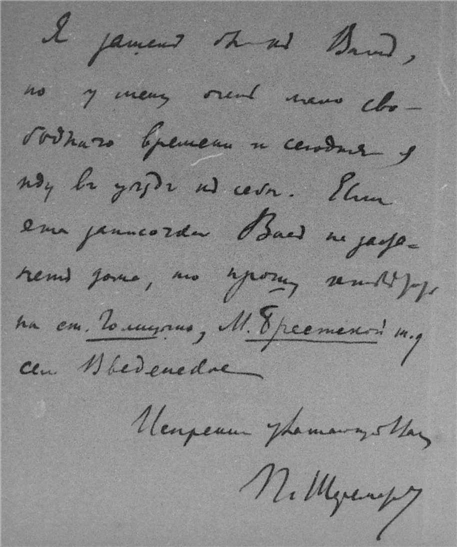 Я заѣхалъ бы къ Вамъ,
но у меня очень мало сво-
бодного времени и сегодня я
иду въ
къ себѣ. Если
эта записочка Васъ не заста-
нетъ дома, то прошу
на ст. Голицыно, М. Брестской ж.д
сел Введенское
Искренно уважающій Васъ